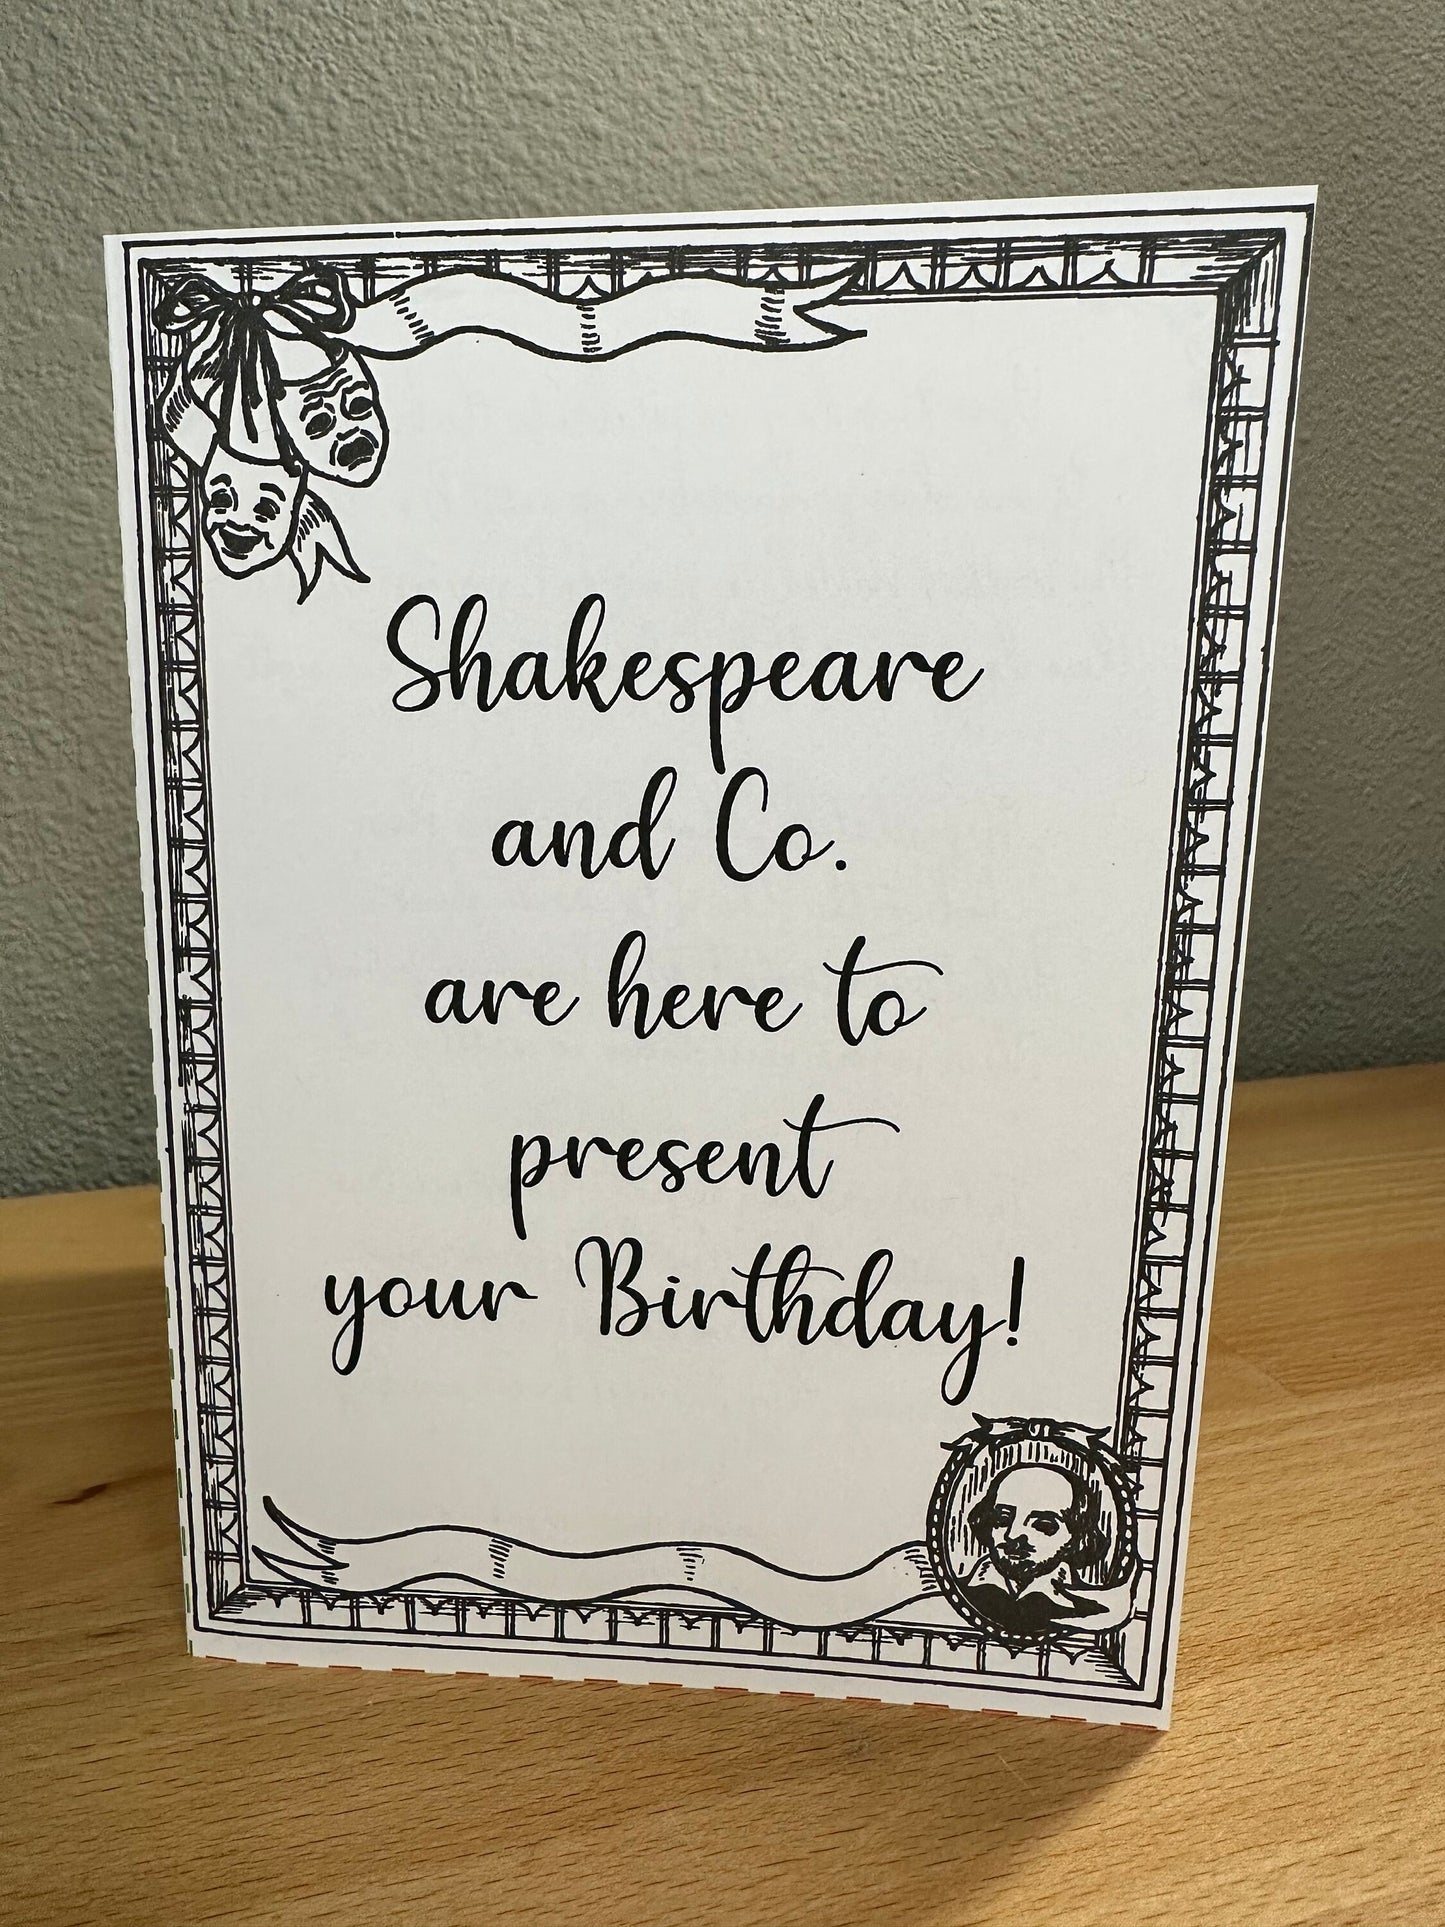 Shakespeare
and Co.
are here to
present
your Birthday!